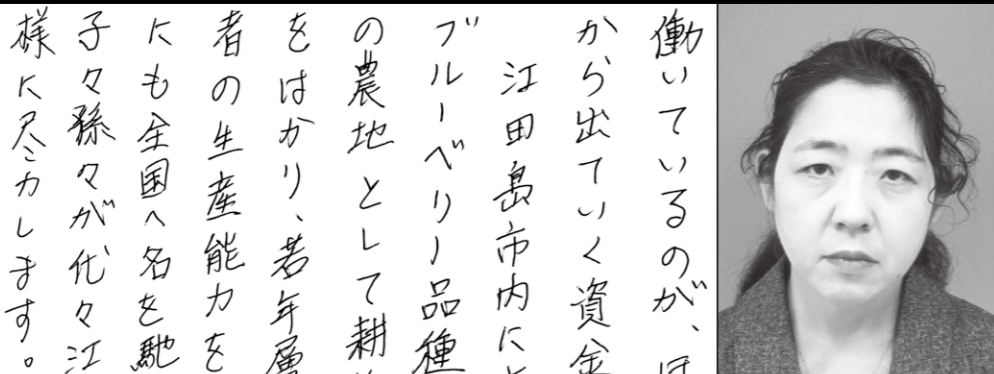 働いているのが、ほ
から出ていく資金
江田島市内に
ブルーベリー品種
の農地として耕
をはかり、若年層
者の生産能力を
にも全国へ名を馳
子々孫々が代々江
様に尽力します。